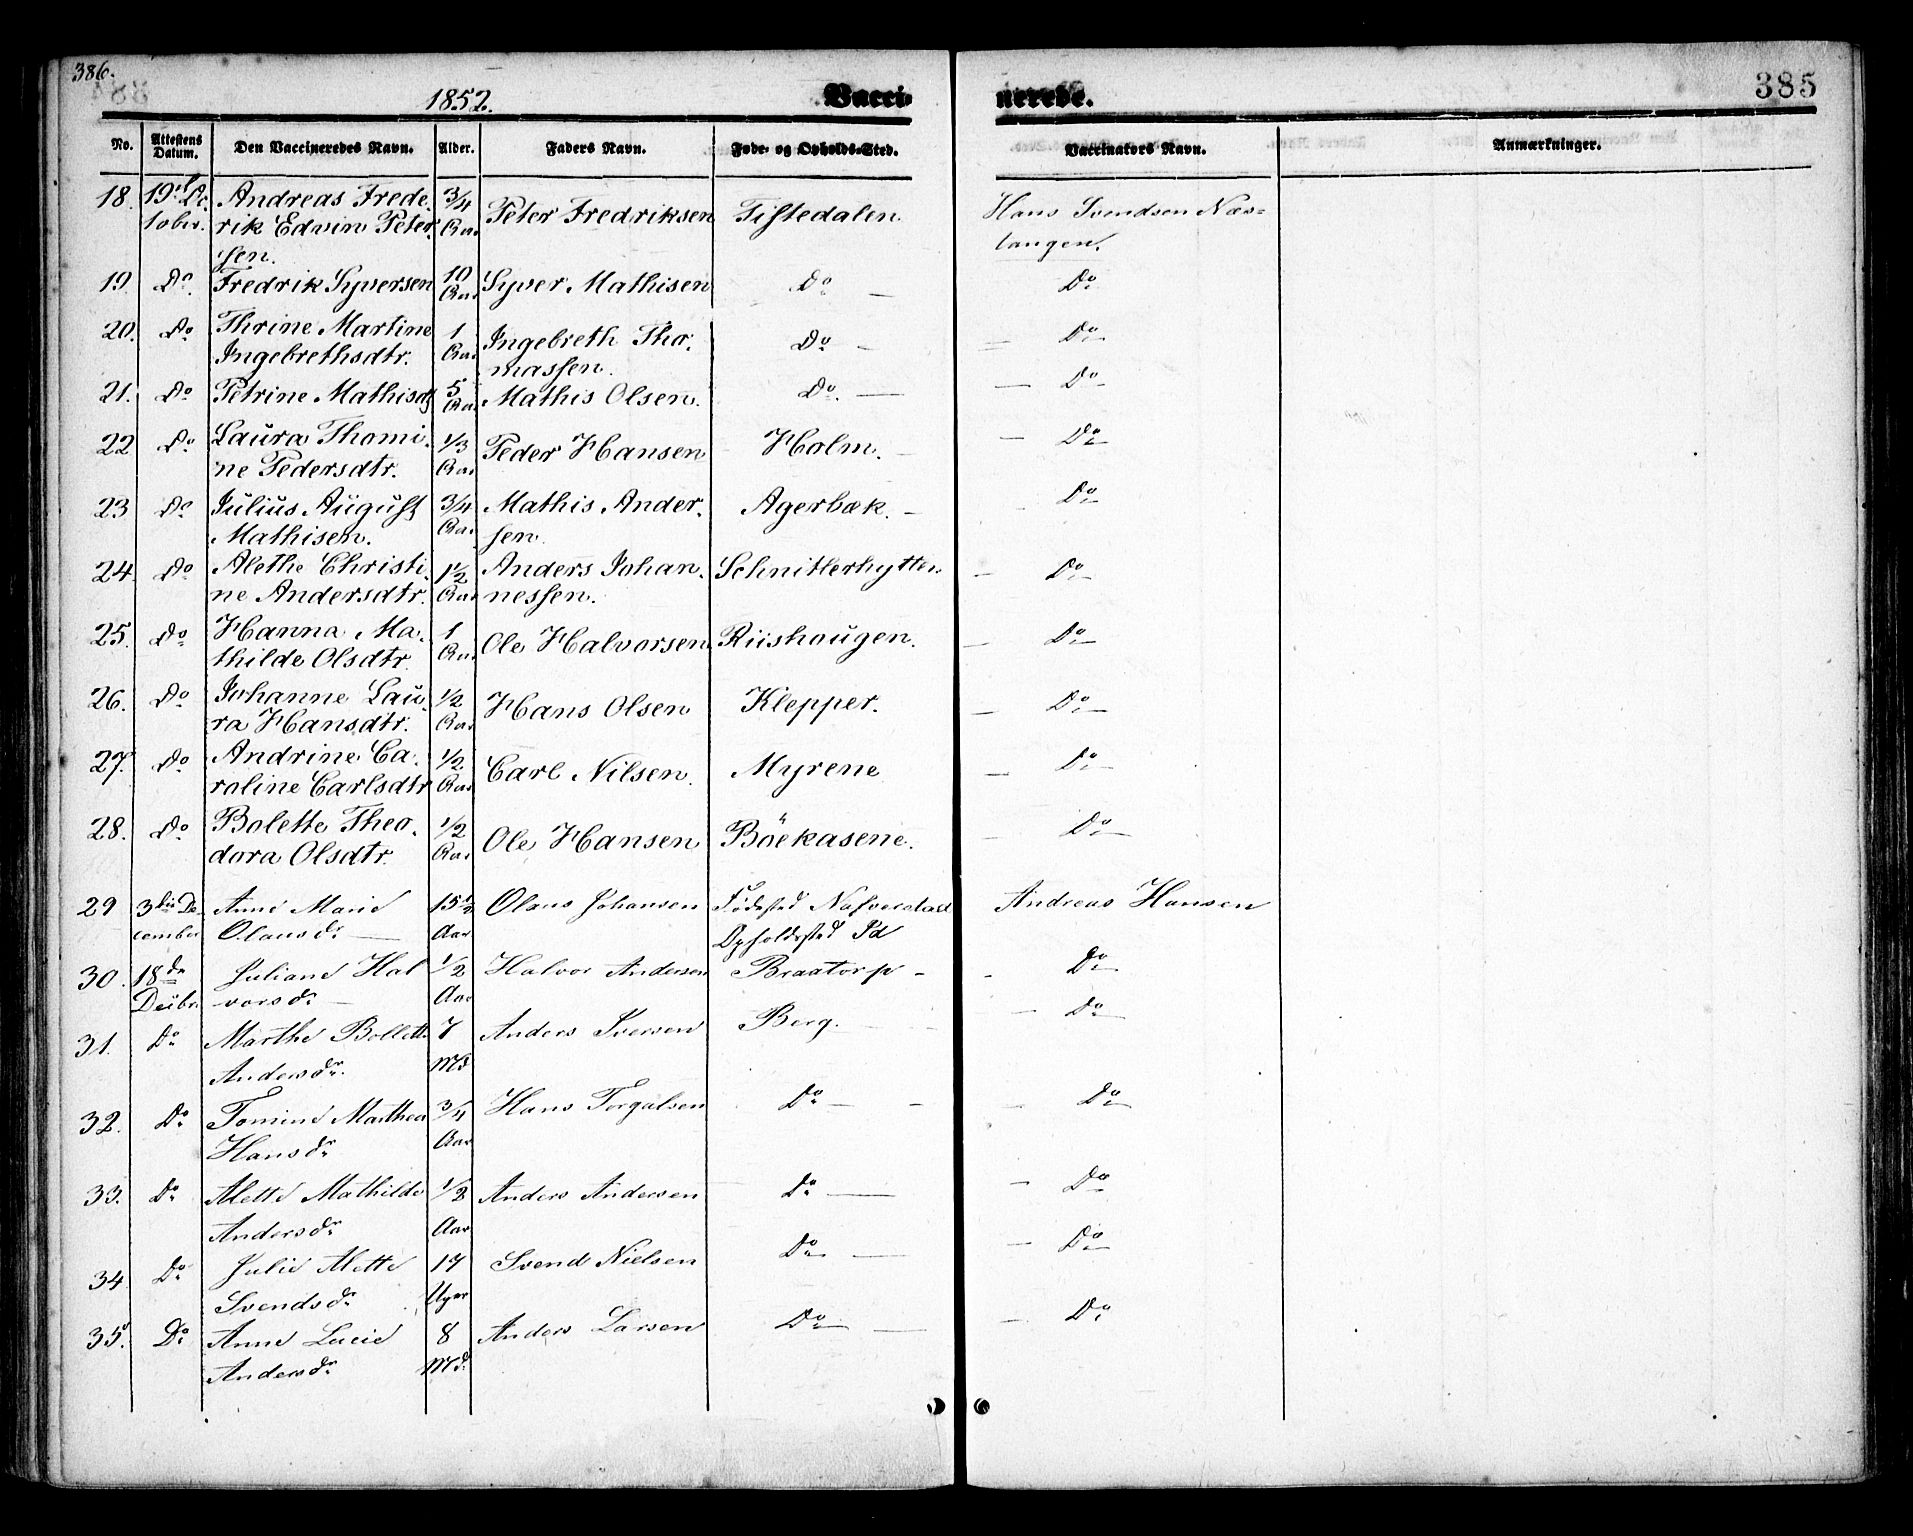 386.
385
1852.
Vacci-
nerede.
No. Attestens Datum. Den Vaccineredes Navn. Alder. Faders Navn. Føde- og Opholds-Sted. Vaccinators Navn. Anmærkninger.
18. 19de Oc- Andreas Frede- 3/4 Peter Fredriksen Tistedalen. Hans Svendsen Næs-
tober. rik Edvin Peter- Aar tangen.
sen.
19. Do. Fredrik Syversen 10 Syver Mathisen Do. — Do
Aar
20. Do Thrine Martine 1 Ingebreth Tho- Do — — Do
Ingebrethsdtr. Aar massen.
21. Do Petrine Mathisd 5 Mathis Olsen. Do. — — Do
Aar
22 Do Laura Thomi- 1/3 Peder Hansen Holm. — — Do
ne Pedersdtr. Aar
23 Do Julius August 3/4 Mathis Ander- Agerbæk. — Do
Mathisen. Aar sen.
24. Do Alethe Christi- 1 1/2 Anders Johan- Schnitlerhytten — Do
ne Andersdtr. Aar nessen.
25. Do Hanna Ma- 1 Ole Halvorsen Riishougen. — Do
thilde Olsdtr. Aar
26. Do Johanne Lau- 1/2 Hans Olsen Klepper. — Do
ra Hansdtr. Aar
27. Do Andrine Ca- 1/2 Carl Nilsen. Myrene — Do
roline Carlsdtr Aar
28. Do Bolette Theo- 1/2 Ole Hansen Böekasene. — Do
dora Olsdtr. Aar
29 3die De- Anne Marie 15 1/2 Olaus Johansen Fødested Nafverstad Andreas Hansen
cember Olausdr — Aar Opholdssted Id
30. 18de Juliane Hal 1/2 Halvor Andersen Braatorp — — Do
Decbr. vorsdr — Aar
31. Do Marthe Bollette 7 Anders Iversen Berg. — Do
Andersdr. Md
32. Do Tomine Marthea 3/4 Hans Torgalsen Do — — — Do
Hansdr Aar
33. Do Mette Mathilde 1/2 Anders Andersen Do — — Do
Andersdr Aar
34. Do Julie Mette 17 Svend Nielsen Do — — Do
Svendsdr Uger
35. Do Anne Lucie 8 Anders Larsen Do — — Do
Andersdr Md.